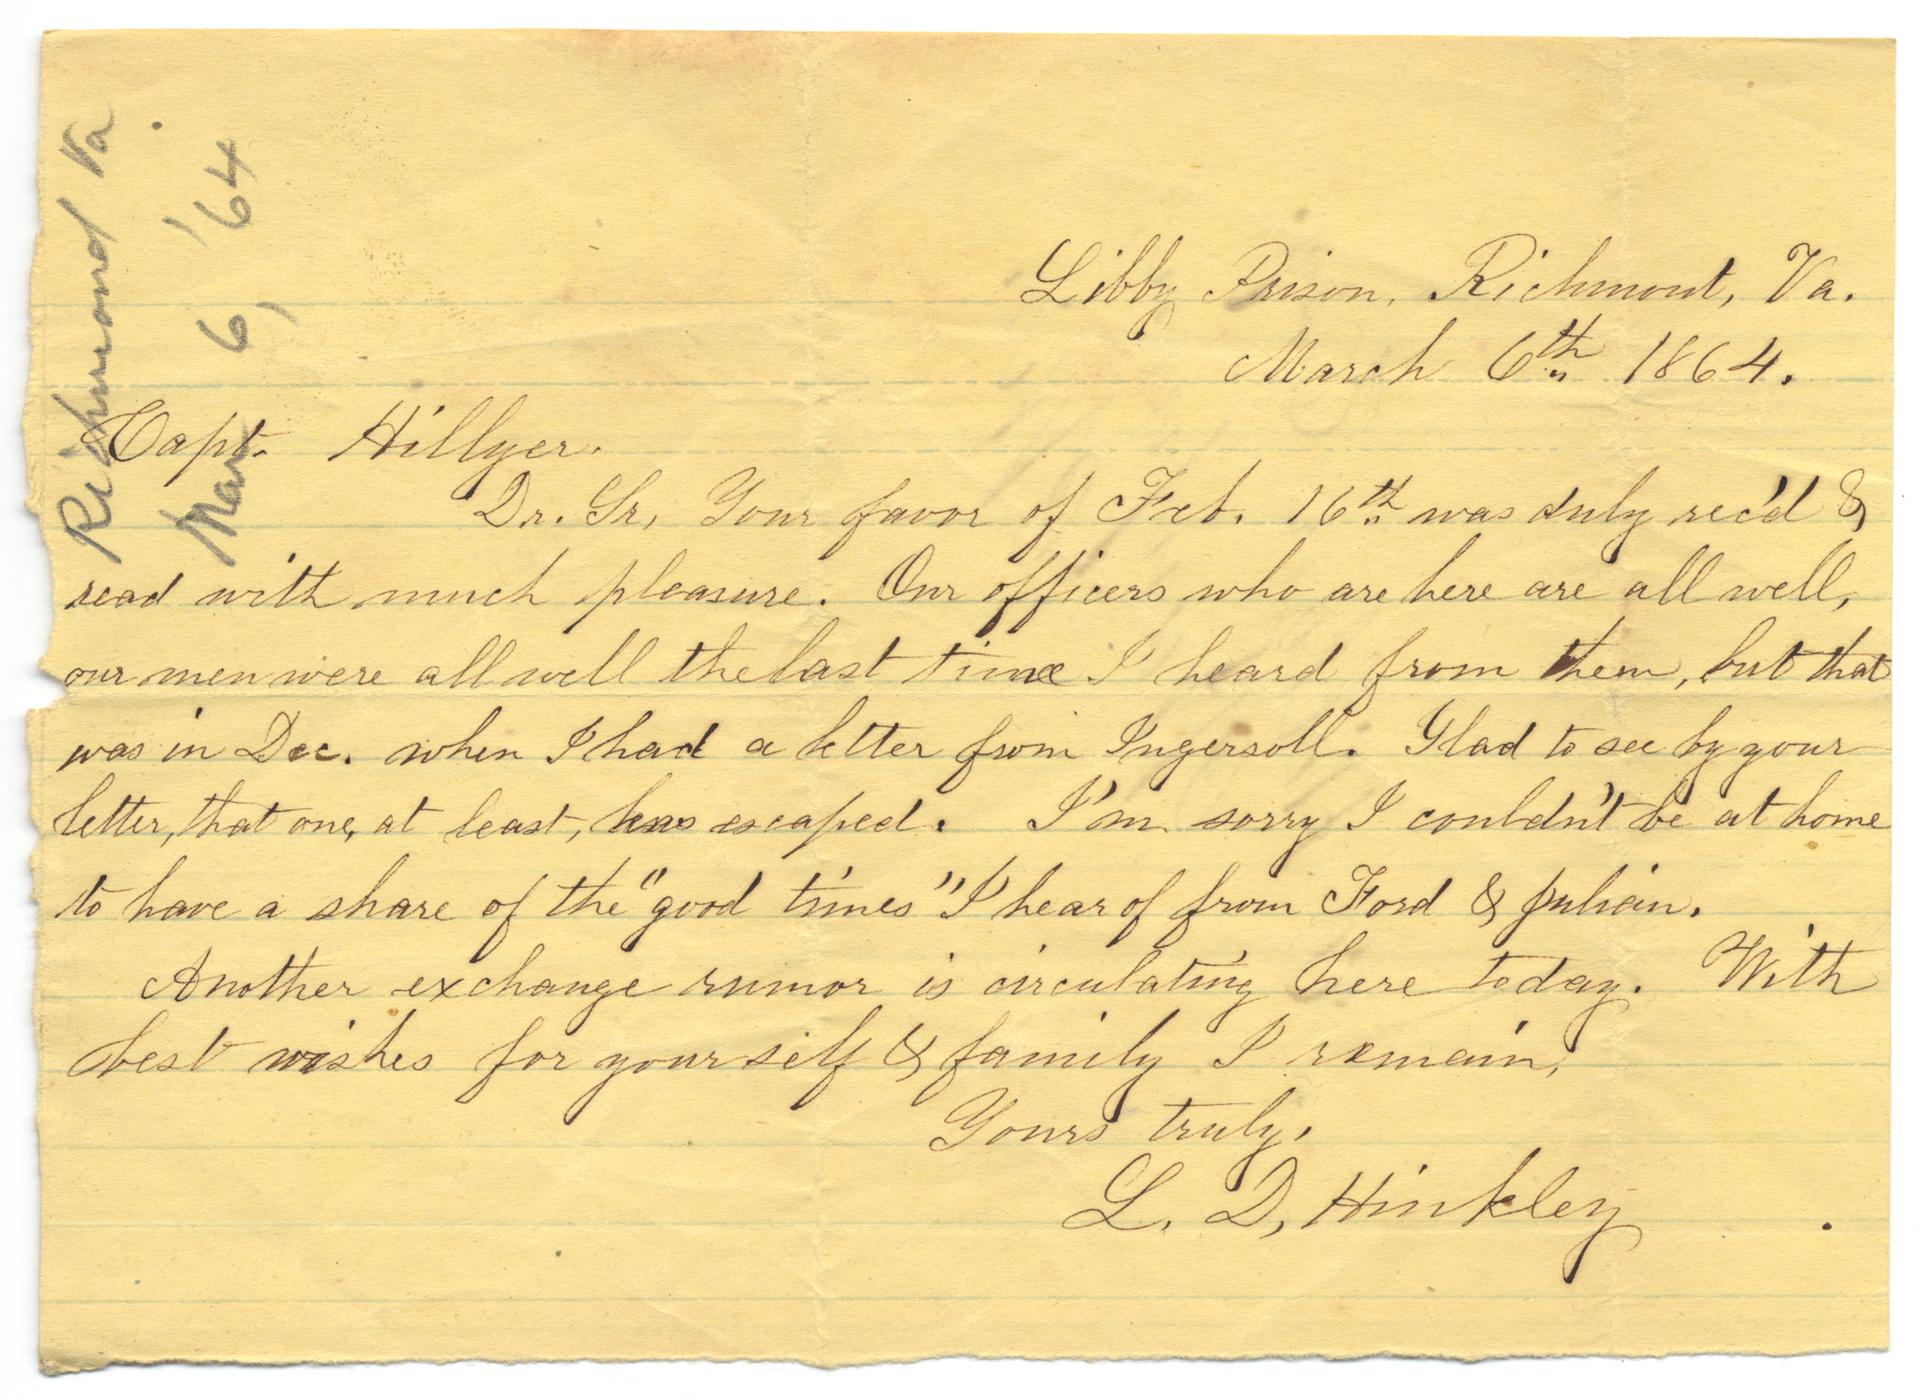 Richmond Va.
Mar 6, '64
Libby Prison, Richmont, Va.
March 6th 1864.
Capt. Hillyer.
Dr. Sr, Your favor of Feb. 16th was duly rec'd &
read with much pleasure. Our officers who are here are all well,
our men were all well the last time I heard from them, but that
was in Dec. when I had a letter from Ingersoll. Glad to see by your
letter, that one, at least, has escaped. I'm sorry I couldn't be at home
to have a share of the "good times" I hear of from Ford & Julian.
Another exchange rumor is circulating here today. With
best wishes for yourself & family I remain,
Yours truly,
L. D. Hinkley